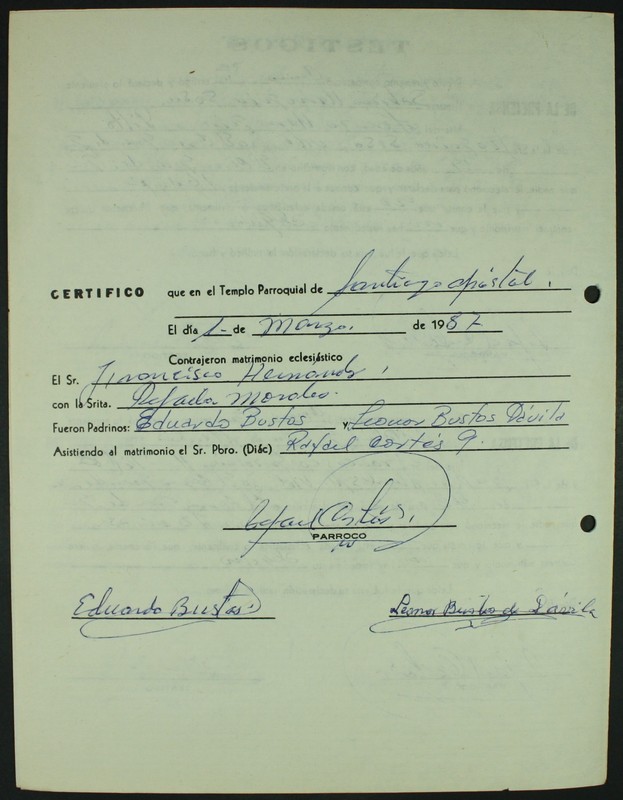 CERTIFICO que en el Templo Parroquial de Santiago Apóstol.
El día 1- de Marzo. de 1987
Contrajeron matrimonio eclesiástico
El Sr. Francisco Hernandz,
con la Srita. Rafaela Morales.
Fueron Padrinos: Eduardo Bustos y Leonor Bustos Dávila
Asistiendo al matrimonio el Sr. Pbro. (Diác) Rafael Cortés G.
Rafael Cortés G.
PARROCO
Eduardo Bustos
Leonor Bustos de Dávila